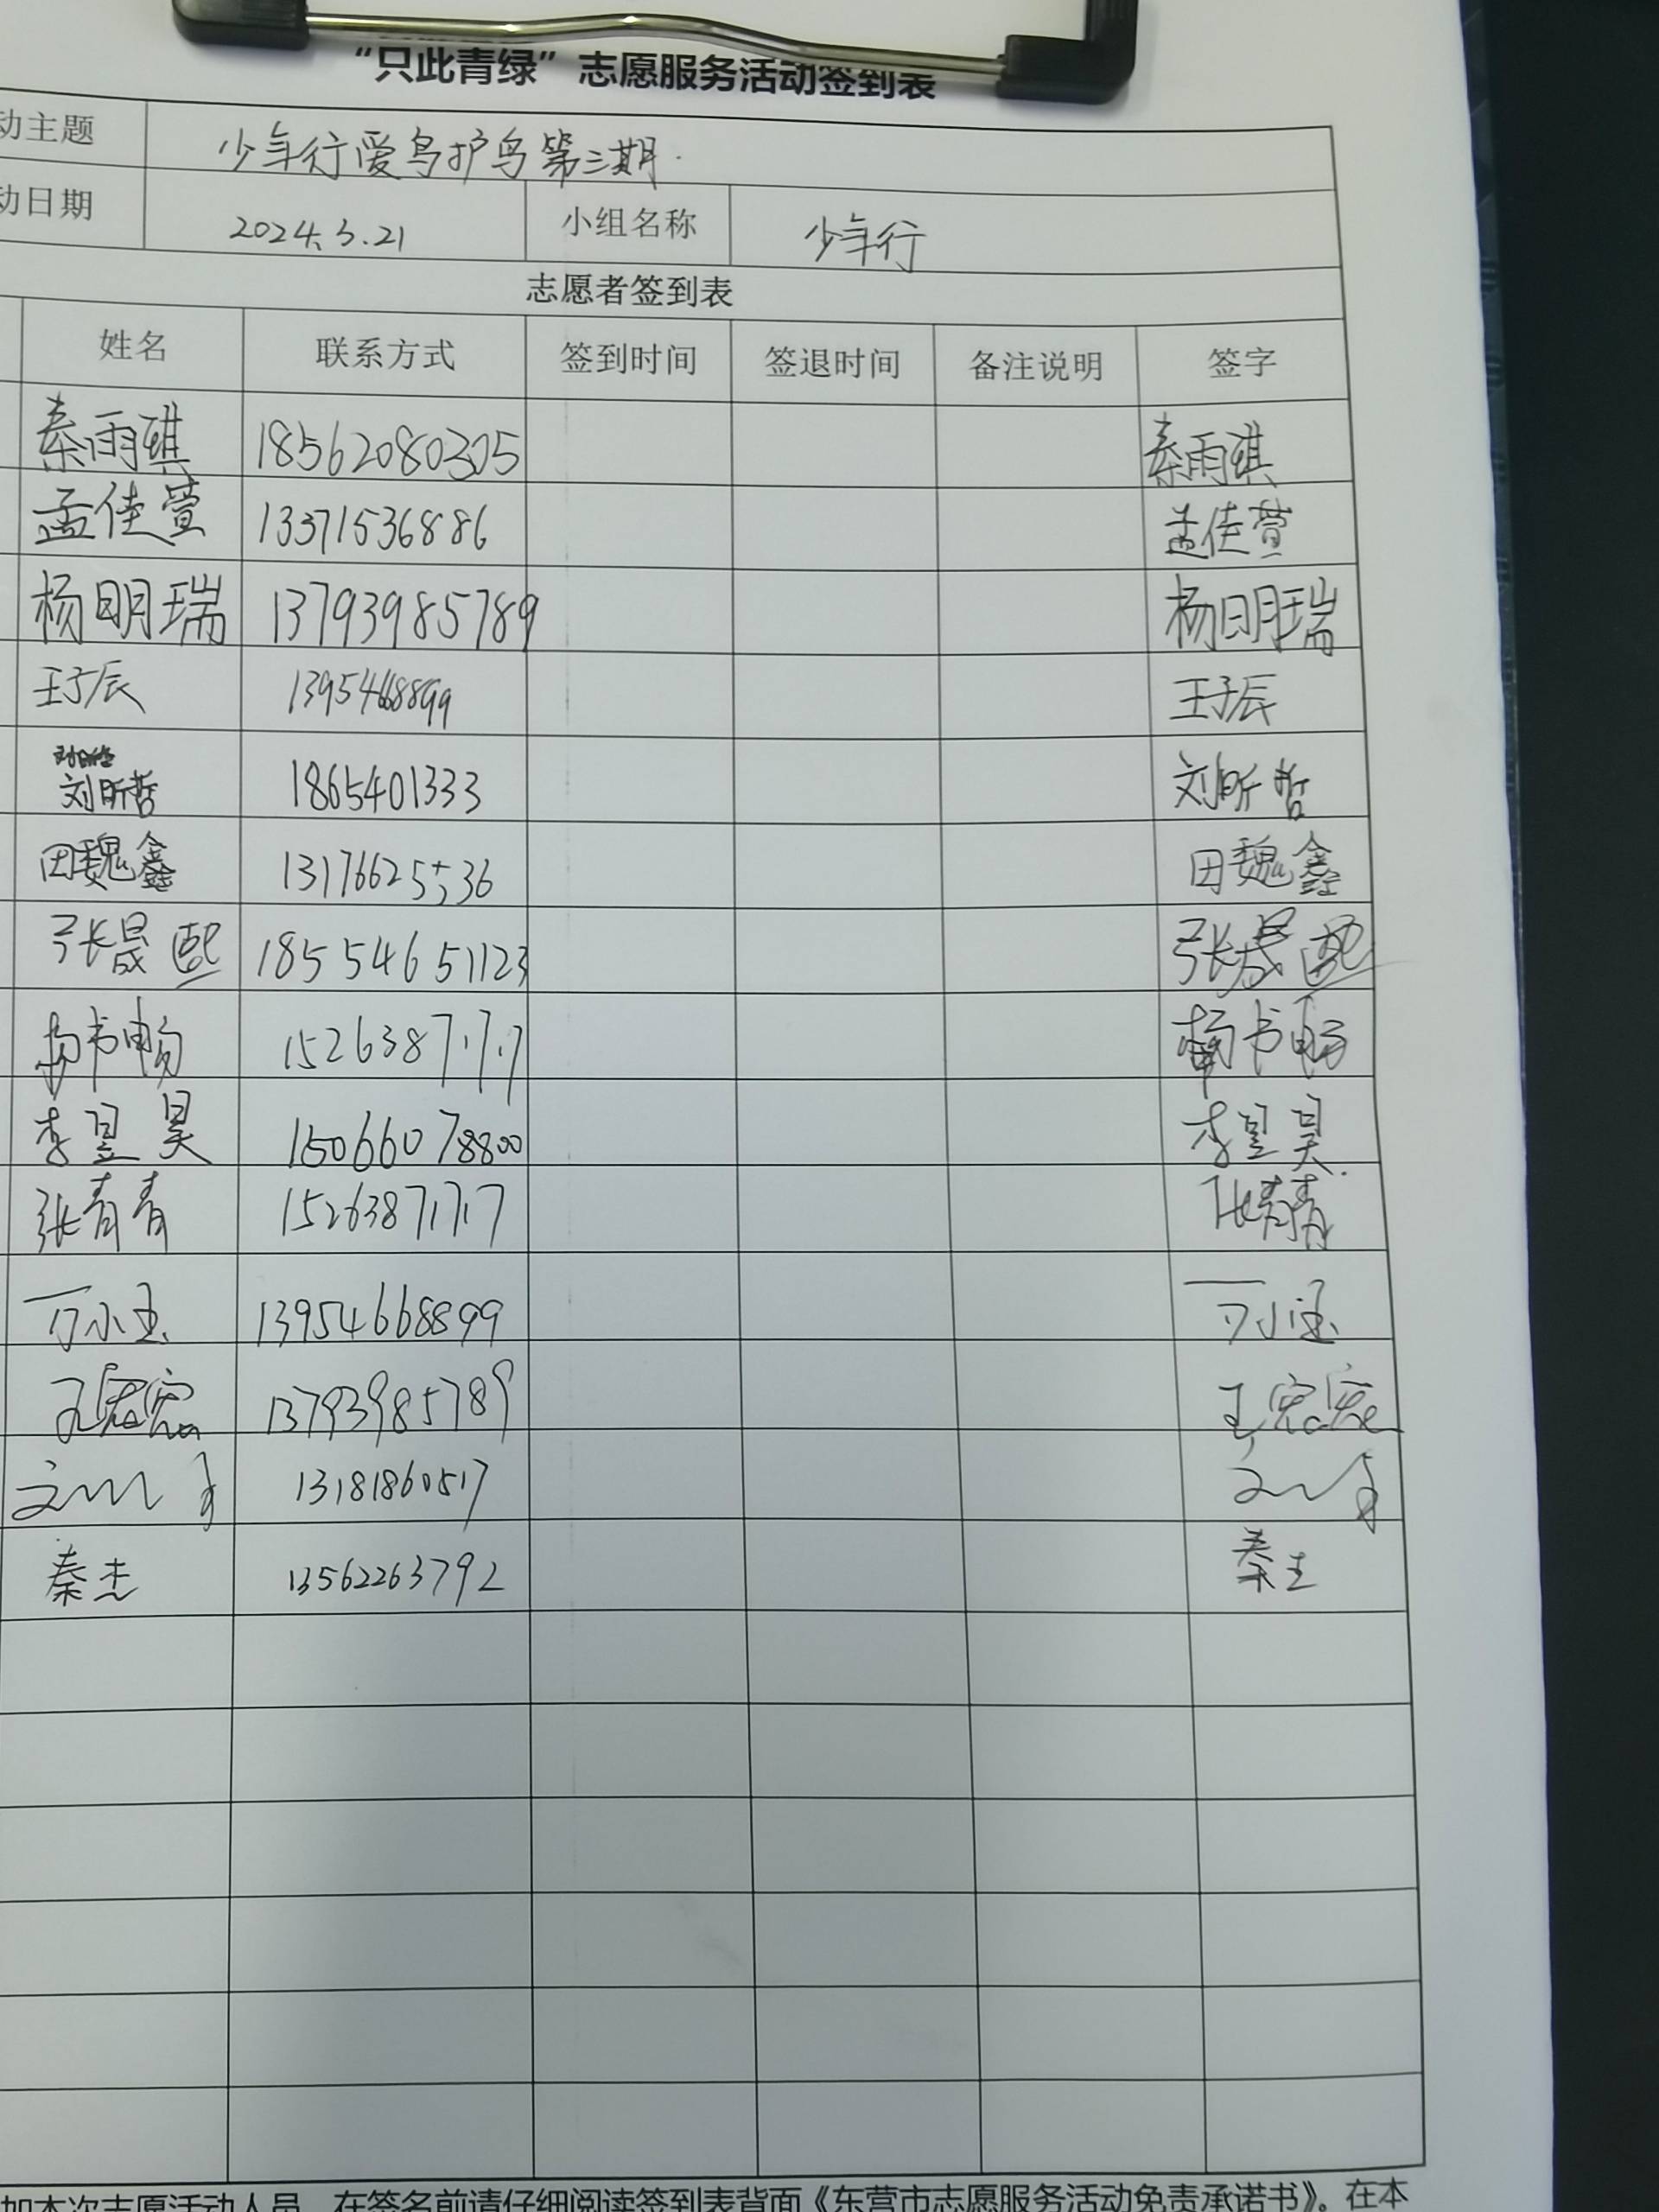 “只此青绿”志愿服务活动签到表
动主题 少年行爱鸟护鸟第三期.
动日期 2024.3.21 小组名称 少年行
志愿者签到表
姓名 联系方式 签到时间 签退时间 备注说明 签字
秦雨琪 18562080305 秦雨琪
孟佳萱 13371536886 孟佳萱
杨明瑞 13793985789 杨明瑞
王子辰 13954668899 王子辰
刘昕哲 1865401333 刘昕哲
田魏鑫 13176625536 田魏鑫
张晟熙 18554651123 张晟熙
杨书畅 15263871717 杨书畅
李昱昊 15066078800 李昱昊
张青青 15263871717 张青青
万小玉 13954668899
13793985789
13181860517
秦杰 13562263792 秦杰
加本次志愿活动人员，在签名前请仔细阅读签到表背面《东营市志愿服务活动免责承诺书》。在本